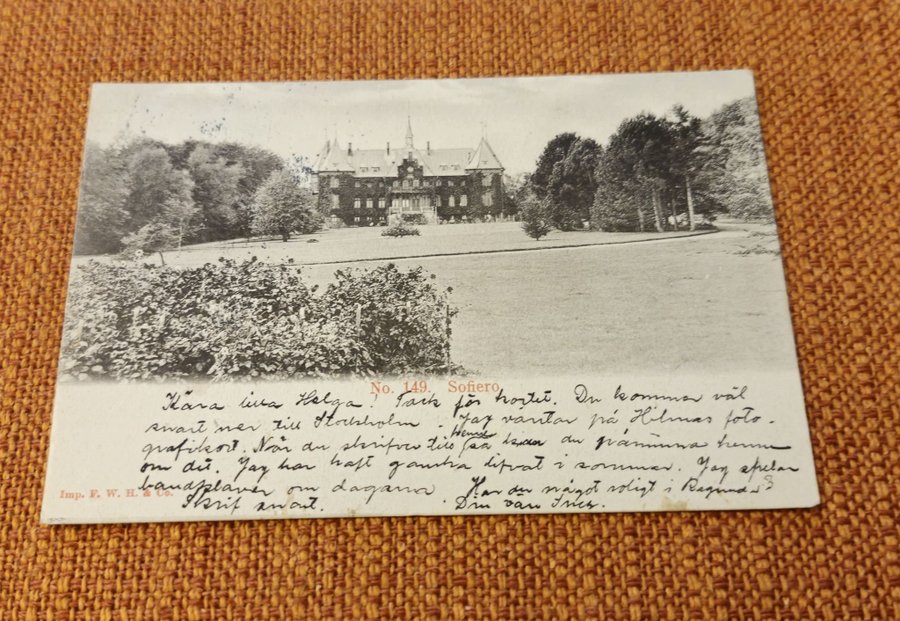 No. 149. Sofiero.
Kära lilla Helga! Tack för kortet. Du kommer väl
snart ner till Stockholm. Jag väntar på Hilmas foto-
grafikort. När du skrifver till henne så kan du påminna henne
om det. Jag har haft ganska lifvat i sommar. Jag spelar
om dagarna. Har du något roligt i
Imp. F. W. H. & Co.
Skrif snart. Din vän